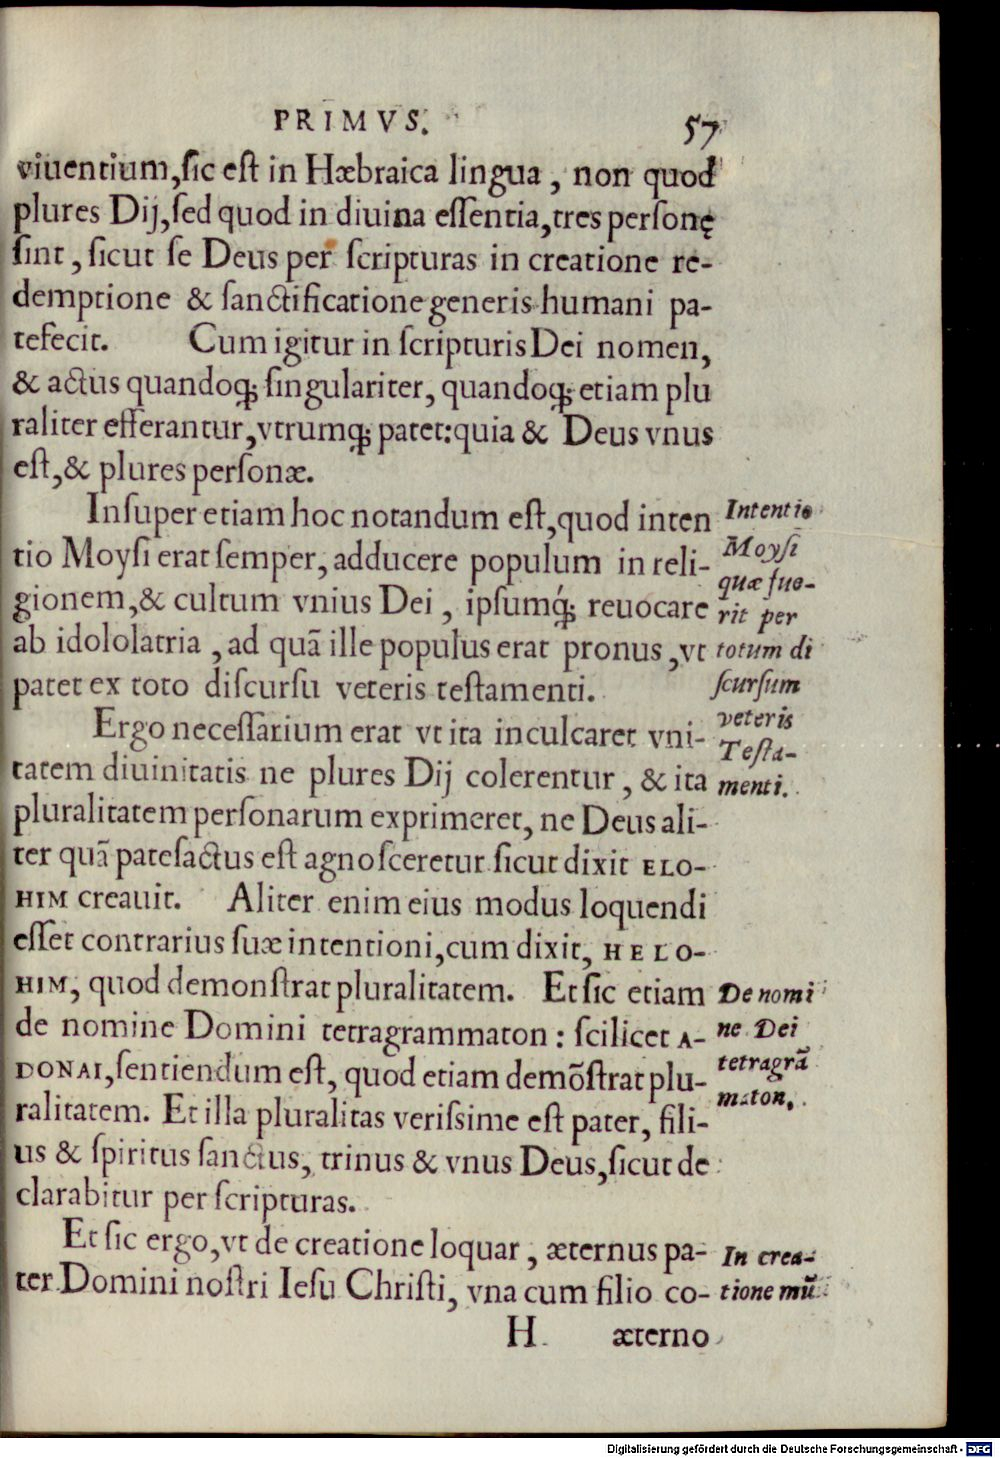 PRIMVS. 57
viuentium, sic est in Hæbraica lingua, non quod
plures Dij, sed quod in diuina essentia, tres personę
sint, sicut se Deus per scripturas in creatione re-
demptione & sanctificatione generis humani pa-
tefecit. Cum igitur in scripturis Dei nomen,
& actus quandoq; singulariter, quandoq; etiam plu
raliter efferantur, vtrumq; patet: quia & Deus vnus
est, & plures personæ.
Insuper etiam hoc notandum est, quod inten
tio Moysi erat semper, adducere populum in reli-
gionem, & cultum vnius Dei, ipsumq́; reuocare
ab idololatria, ad quā ille populus erat pronus, vt
patet ex toto discursu veteris testamenti.
Intentio
Moysi
quæ fue-
rit per
totum di
scursum
veteris
Testa-
menti.
Ergo necessarium erat vt ita inculcaret vni-
tatem diuinitatis ne plures Dij colerentur, & ita
pluralitatem personarum exprimeret, ne Deus ali-
ter quā patefactus est agnosceretur sicut dixit ELO-
HIM creauit. Aliter enim eius modus loquendi
esset contrarius suæ intentioni, cum dixit, HELO-
HIM, quod demonstrat pluralitatem. Et sic etiam
de nomine Domini tetragrammaton: scilicet A-
DONAI, sentiendum est, quod etiam demōstrat plu-
ralitatem. Et illa pluralitas verissime est pater, fili-
us & spiritus sanctus, trinus & vnus Deus, sicut de
clarabitur per scripturas.
De nomi
ne Dei
tetragrā
maton.
Et sic ergo, vt de creatione loquar, æternus pa-
ter Domini nostri Iesu Christi, vna cum filio co-
In crea-
tione mū
H æterno
Digitalisierung gefördert durch die Deutsche Forschungsgemeinschaft - DFG